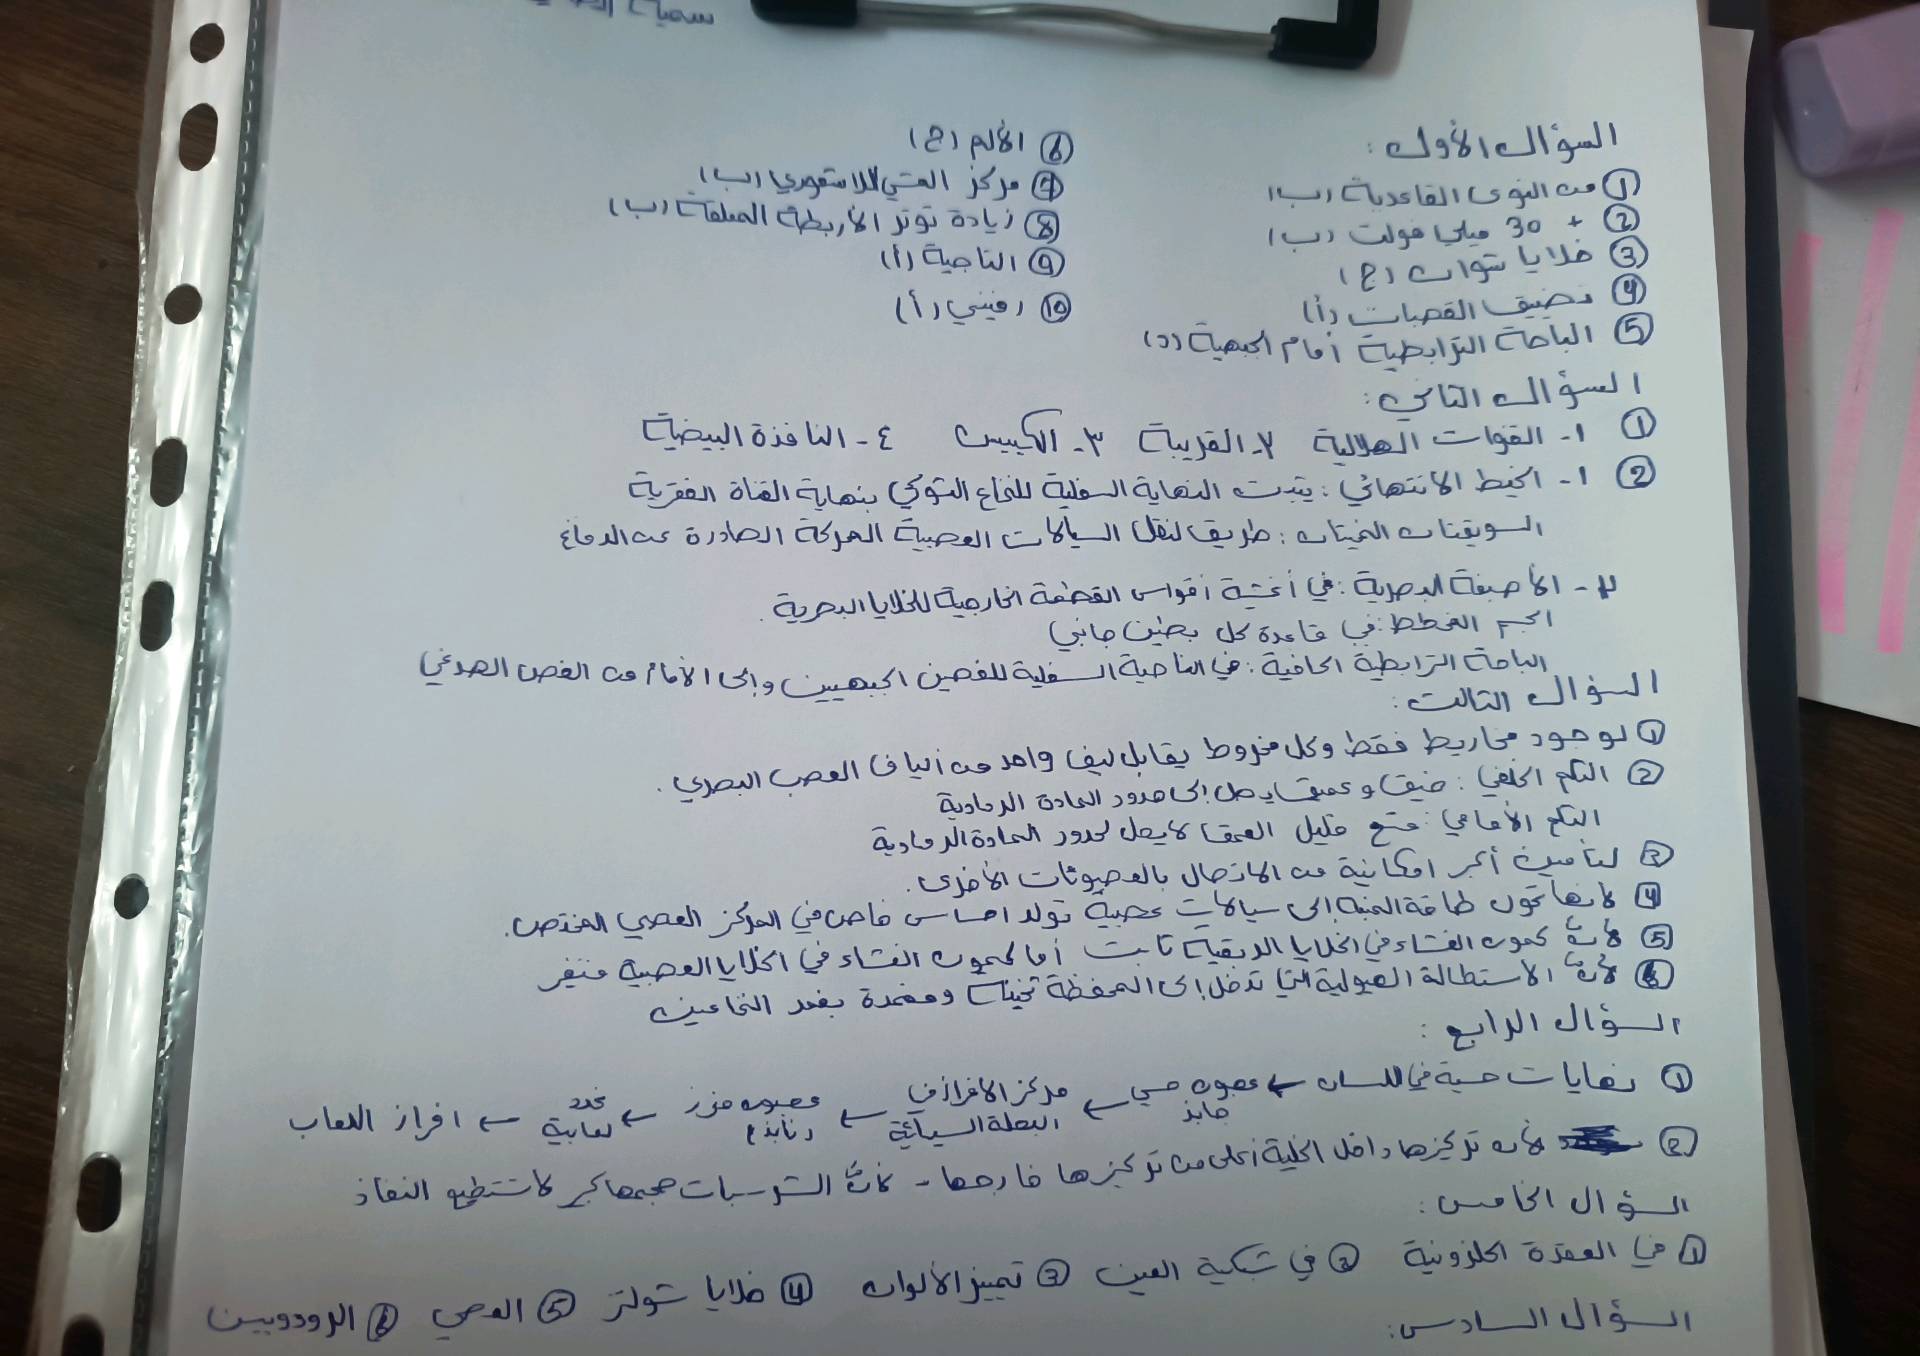 السؤال الأول:
① من النوى القاعدية (ب)
② + 30 ميلي فولت (ب)
③ خلايا شوان (ج)
④ تضييق القصبات (أ)
⑤ الباحة الترابطية أمام الجبهية (د)
⑥ الألم (ج)
⑦ مركز المشي اللاشعوري (ب)
⑧ زيادة توتر الأربطة المعلقة (ب)
⑨ التاجية (أ)
⑩ رفيني (أ)
السؤال الثاني:
① ١- القنوات الهلالية ٢- القريبة ٣- الكييس ٤- النافذة البيضية
② ١- الخيط الانتهائي: يثبت النهاية السفلية للنخاع الشوكي بنهاية القناة الفقرية
السويقتان المخيتان: طريق لنقل السيالات العصبية المحركة الصادرة عن الدماغ
٢- الأصبغة البصرية: في أغشية أقواس القطعة الخارجية للخلايا البصرية.
الجسم المخطط: في قاعدة كل بطين جانبي
الباحة الترابطية الحافية: في الناحية السفلية للفصين الجبهيين وإلى الأمام من الفص الصدغي
السؤال الثالث:
① لوجود مخاريط فقط وكل مخروط يقابل ليف واحد من ألياف العصب البصري.
② الثلم الخلفي: ضيق وعميق يصل إلى حدود المادة الرمادية
الثلم الأمامي: متسع قليل العمق لا يصل لحدود المادة الرمادية
③ لتأمين أكبر امكانية من الاتصال بالعصبونات الأخرى.
④ لأنها تحول طاقة المنبه إلى سيالات عصبية تولد احساس خاص في المركز العصبي المختص.
⑤ لأن كمون الغشاء في الخلايا الدبقية ثابت أما كمون الغشاء في الخلايا العصبية متغير
⑥ لأن الاستطالة الهيولية التي تدخل إلى المحفظة ثخينة ومغمدة بغمد النخاعين
السؤال الرابع:
① نهايات حسية في اللسان ← عصبون حسي جابذ ← مركز الافراز في البصلة السيسائية ← عصبون مفرز (نابذ) ← غدد لعابية ← افراز اللعاب
② لأن تركيزها داخل الخلية أعلى من تركيزها خارجها - لأن الشرسبات حجمها كبير لا تستطيع النفاذ
السؤال الخامس:
① في العقدة الحلزونية ② في شبكية العين ③ تمييز الألوان ④ خلايا شولتز ⑤ العصي ⑥ الرودوبسين
السؤال السادس: